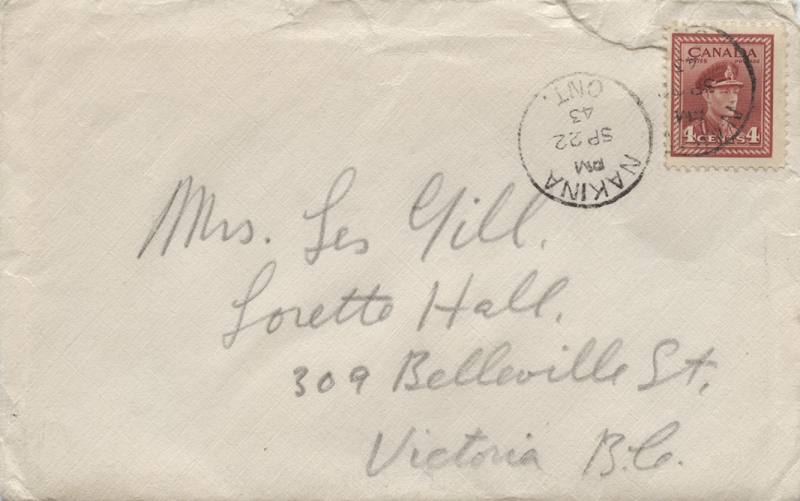 CANADA
POSTES POSTAGE
4 CENTS 4
NAKINA
PM
SP 22
43
ONT.
Mrs. Les Gill,
Lorette Hall,
309 Belleville St,
Victoria B.C.